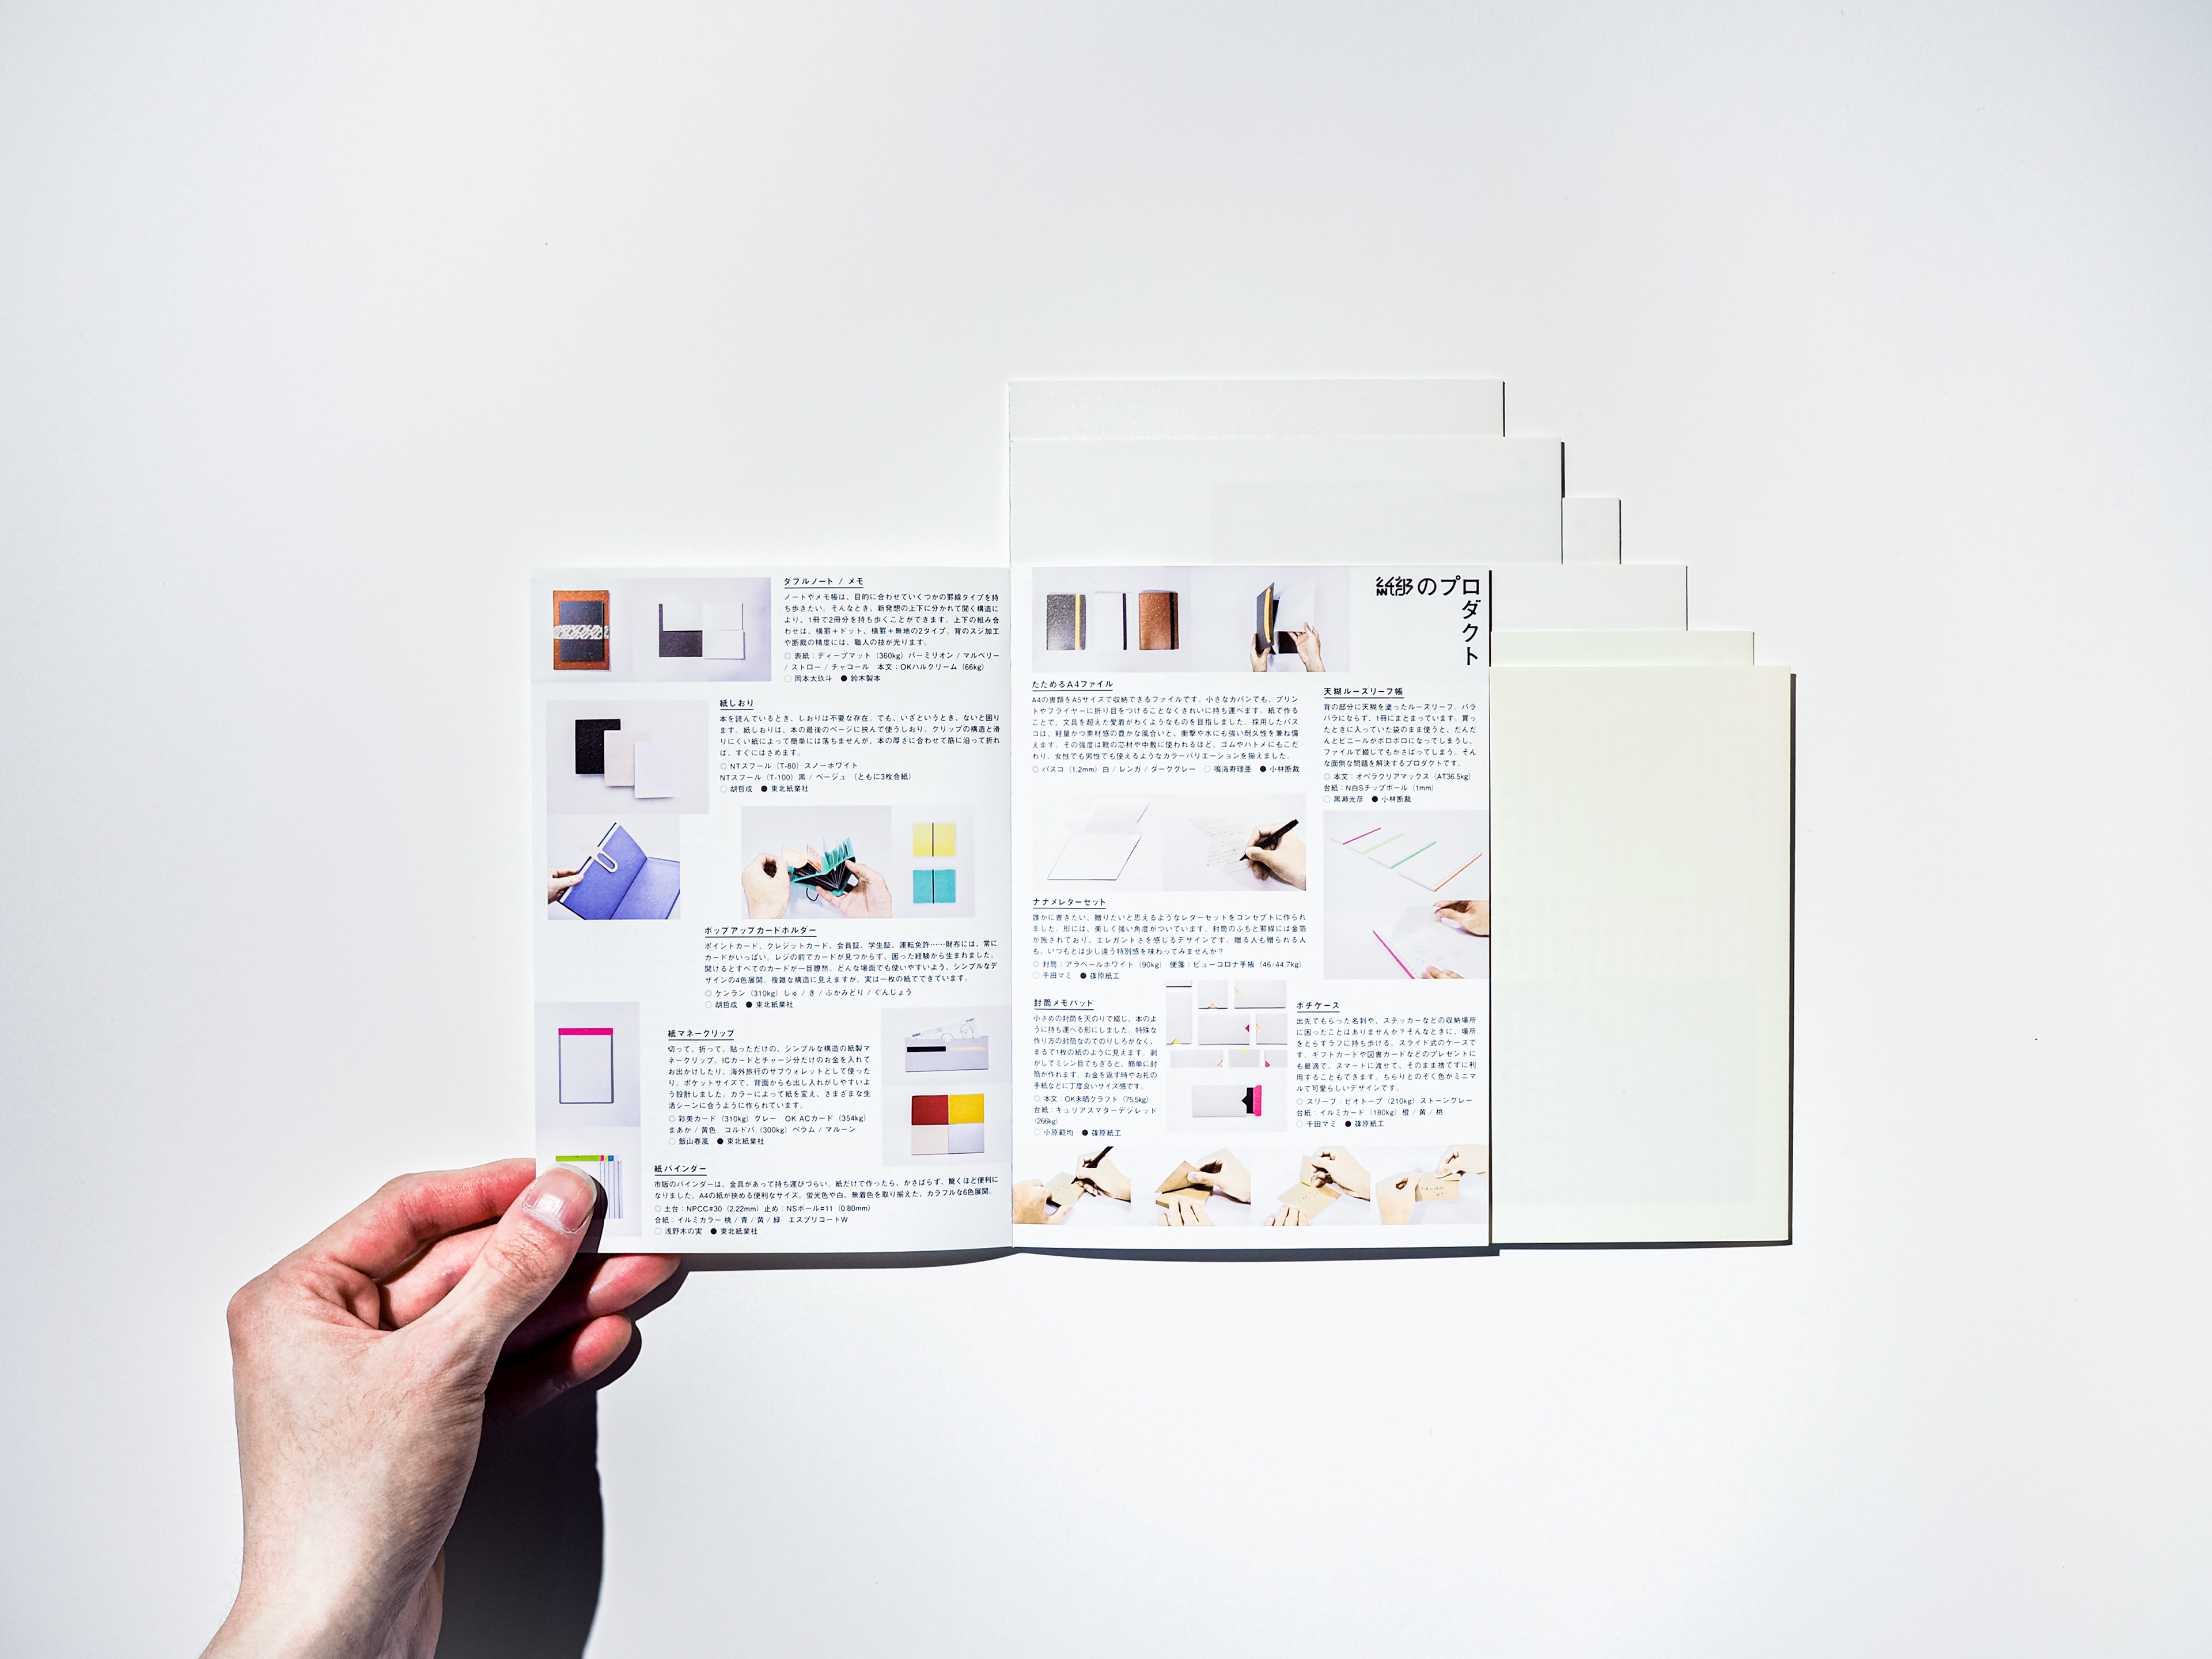 ダブルノート / メモ
ノートやメモ帳は、目的に合わせていくつかの罫線タイプを持
ち歩きたい。そんなとき、新発想の上下に分かれて開く構造に
より、1冊で2冊分を持ち歩くことができます。上下の組み合
わせは、横罫＋ドット、横罫＋無地の2タイプ。背のスジ加工
や断裁の精度には、職人の技が光ります。
◎ 表紙：ディープマット（360kg）バーミリオン / マルベリー
/ ストロー / チャコール　本文：OKハルクリーム（66kg）
○ 岡本太玖斗　● 鈴木製本
紙しおり
本を読んでいるとき、しおりは不要な存在。でも、いざというとき、ないと困り
ます。紙しおりは、本の最後のページに挟んで使うしおり。クリップの構造と滑
りにくい紙によって簡単には落ちませんが、本の厚さに合わせて筋に沿って折れ
ば、すぐにはさめます。
◎ NTスフール（T-80）スノーホワイト
NTスフール（T-100）黒 / ベージュ （ともに3枚合紙）
○ 胡哲成　● 東北紙業社
ポップアップカードホルダー
ポイントカード、クレジットカード、会員証、学生証、運転免許……財布には、常に
カードがいっぱい。レジの前でカードが見つからず、困った経験から生まれました。
開けるとすべてのカードが一目瞭然。どんな場面でも使いやすいよう、シンプルなデ
ザインの4色展開。複雑な構造に見えますが、実は一枚の紙でできています。
◎ ケンラン（310kg）しゅ / き / ふかみどり / ぐんじょう
○ 胡哲成　● 東北紙業社
紙マネークリップ
切って、折って、貼っただけの、シンプルな構造の紙製マ
ネークリップ。ICカードとチャージ分だけのお金を入れて
お出かけしたり、海外旅行のサブウォレットとして使った
り。ポケットサイズで、背面からも出し入れがしやすいよ
う設計しました。カラーによって紙を変え、さまざまな生
活シーンに合うように作られています。
◎ 彩美カード（310kg）グレー　OK ACカード（354kg）
まあか / 黄色　コルドバ（300kg）ベラム / マルーン
○ 飯山春風　● 東北紙業社
紙バインダー
市販のバインダーは、金具があって持ち運びづらい。紙だけで作ったら、かさばらず、驚くほど便利に
なりました。A4の紙が挟める便利なサイズ。蛍光色や白、無着色を取り揃えた、カラフルな6色展開。
◎ 土台：NPCC#30（2.22mm）止め：NSボール#11（0.80mm）
合紙：イルミカラー 桃 / 青 / 黄 / 緑　エスプリコートW
○ 浅野木の実　● 東北紙業社
紙部のプロ
ダクト
たためるA4ファイル
A4の書類をA5サイズで収納できるファイルです。小さなカバンでも、プリン
トやフライヤーに折り目をつけることなくきれいに持ち運べます。紙で作る
ことで、文具を超えた愛着がわくようなものを目指しました。採用したパス
コは、軽量かつ素材感の豊かな風合いと、衝撃や水にも強い耐久性を兼ね備
えます。その強度は靴の芯材や中敷に使われるほど。ゴムやハトメにもこだ
わり、女性でも男性でも使えるようなカラーバリエーションを揃えました。
◎ パスコ（1.2mm）白 / レンガ / ダークグレー　○ 鳴海寿理亜　● 小林断裁
天糊ルーズリーフ帳
背の部分に天糊を塗ったルーズリーフ。バラ
バラにならず、1冊にまとまっています。買っ
たときに入っていた袋のまま使うと、だんだ
んとビニールがボロボロになってしまうし、
ファイルで綴じてもかさばってしまう。そん
な面倒な問題を解決するプロダクトです。
◎ 本文：オペラクリアマックス（AT36.5kg）
台紙：N白Sチップボール（1mm）
○ 黒瀬光彦　● 小林断裁
ナナメレターセット
誰かに書きたい、贈りたいと思えるようなレターセットをコンセプトに作られ
ました。形には、美しく強い角度がついています。封筒のふちと罫線には金箔
が施されており、エレガントさを感じるデザインです。贈る人も贈られる人
も、いつもとは少し違う特別感を味わってみませんか？
◎ 封筒：アラベールホワイト（90kg）便箋：ピューコロナ手帳（46/44.7kg）
○ 千田マミ　● 篠原紙工
封筒メモパッド
小さめの封筒を天のりで綴じ、本のよ
うに持ち運べる形にしました。特殊な
作り方の封筒なのでのりしろがなく、
まるで1枚の紙のように見えます。剥
がしてミシン目でちぎると、簡単に封
筒が作れます。お金を返す時やお礼の
手紙などに丁度良いサイズ感です。
◎ 本文：OK未晒クラフト（75.5kg）
台紙：キュリアスマターデジレッド
(266kg)
○ 小原範均　● 篠原紙工
ポチケース
出先でもらった名刺や、ステッカーなどの収納場所
に困ったことはありませんか？そんなときに、場所
をとらずラフに持ち歩ける、スライド式のケースで
す。ギフトカードや図書カードなどのプレゼントに
も最適で、スマートに渡せて、そのまま捨てずに利
用することもできます。ちらりとのぞく色がミニマ
ルで可愛らしいデザインです。
◎ スリーブ：ビオトープ（210kg）ストーングレー
台紙：イルミカード（180kg）橙 / 黄 / 桃
○ 千田マミ　● 篠原紙工